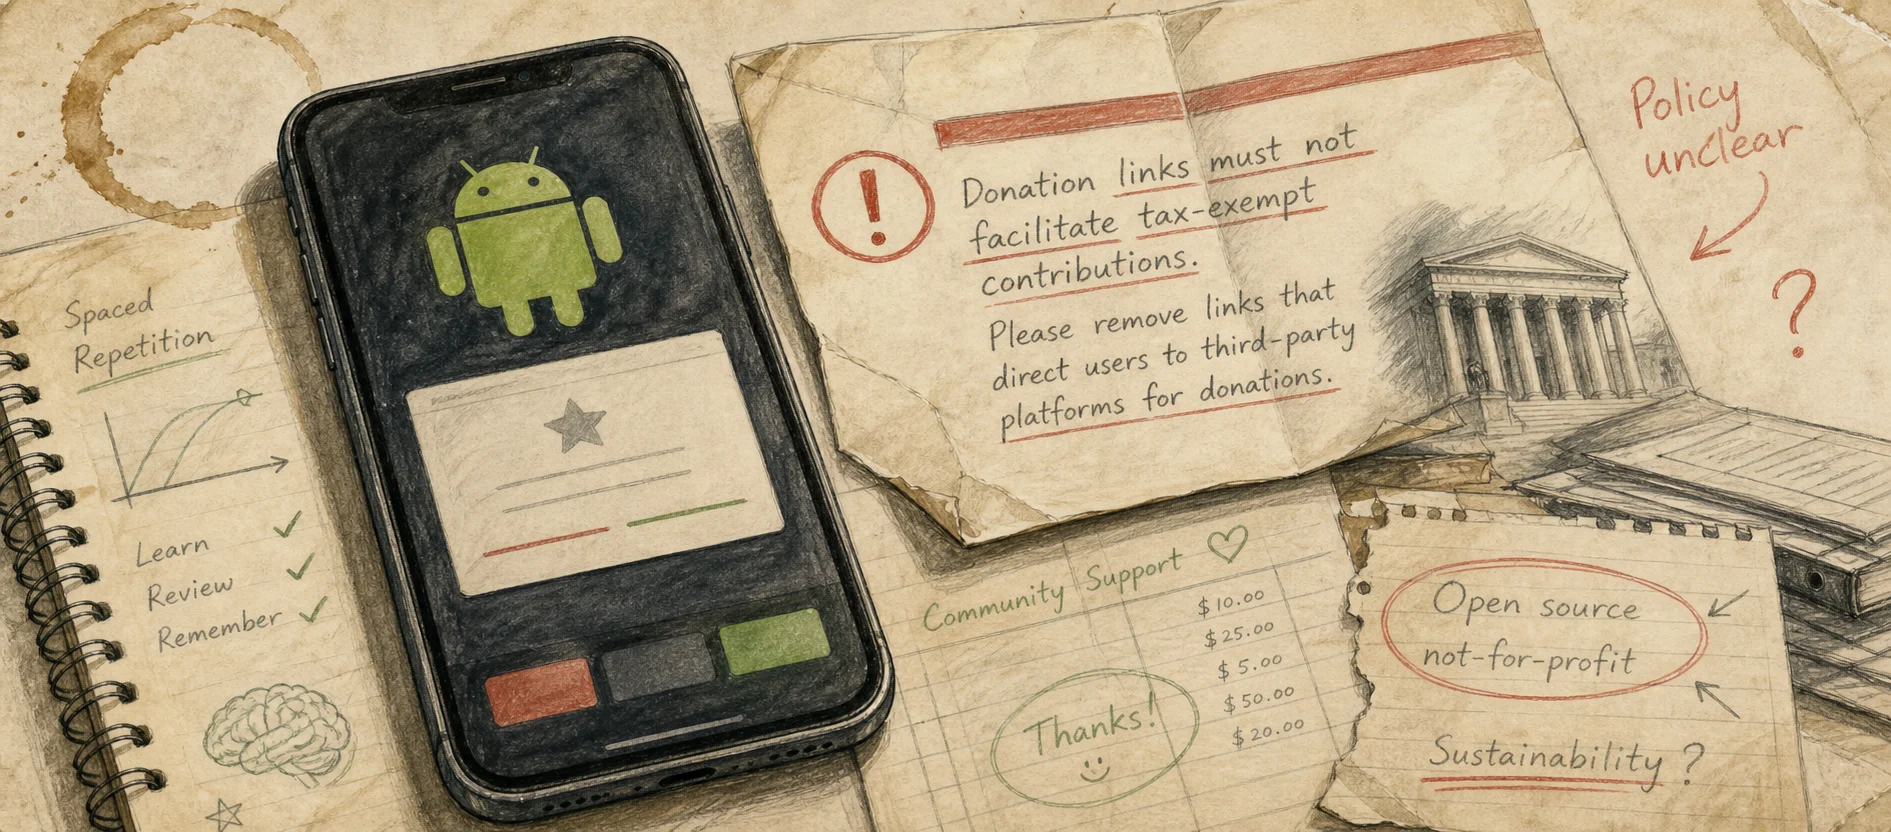 Spaced
Repetition
Learn
Review
Remember
Donation links must not
facilitate tax-exempt
contributions.
Please remove links that
direct users to third-party
platforms for donations.
Policy
unclear
?
Community Support
$10.00
$25.00
$5.00
$50.00
$20.00
Thanks!
Open source
not-for-profit
Sustainability?